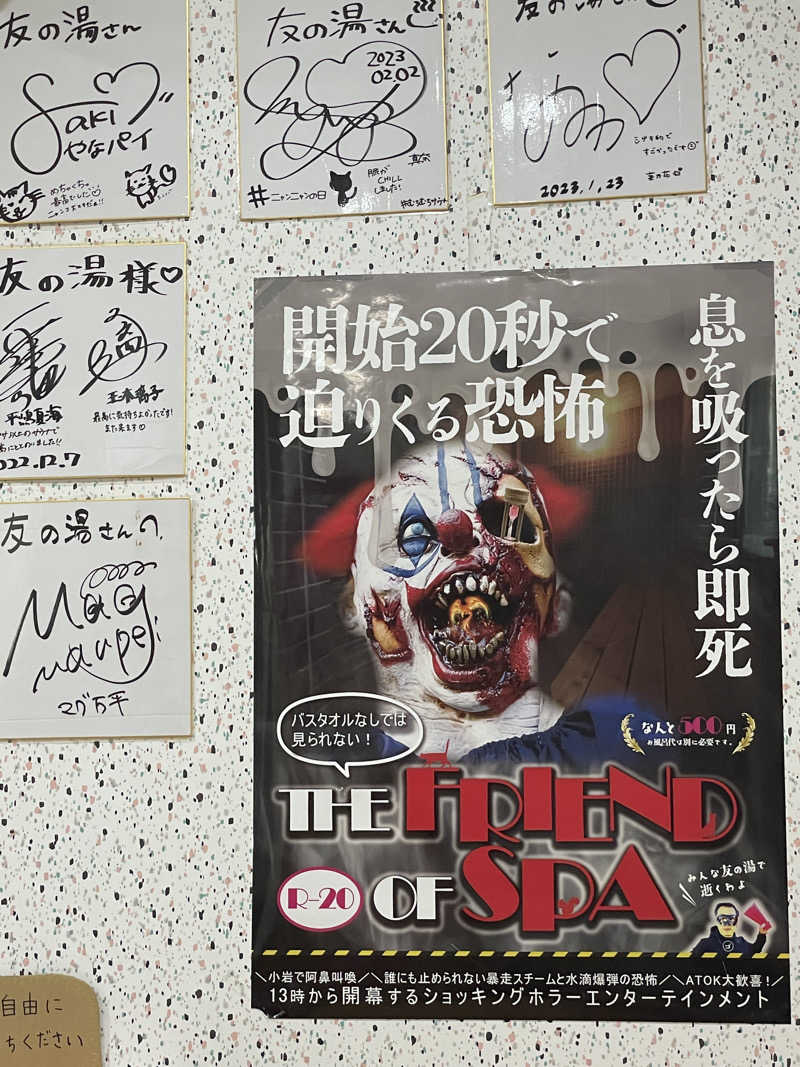 友の湯さん
Saki
やなパイ
めちゃくちゃ
最高でした♡
友の湯さん
2023
02.02
真奈
豚が
CHILL
しました!
#ニャンニャンの日
#むちむちサウナ
友の湯さん
2023.1.23
友の湯様♡
平嶋夏海
最高に気持ちよかったです!
また来ます☺
2022.12.7
友の湯さんへ
マグ万平
開始20秒で
迫りくる恐怖
息を吸ったら即死
バスタオルなしでは
見られない!
なんと500円
お風呂代は別に必要です。
THE FRIEND
R-20 OF SPA
みんな友の湯で
逝くわよ
\小岩で阿鼻叫喚/\誰にも止められない暴走スチームと水滴爆弾の恐怖/\ATOK大歓喜!/
13時から開幕するショッキングホラーエンターテインメント
自由に
ちください